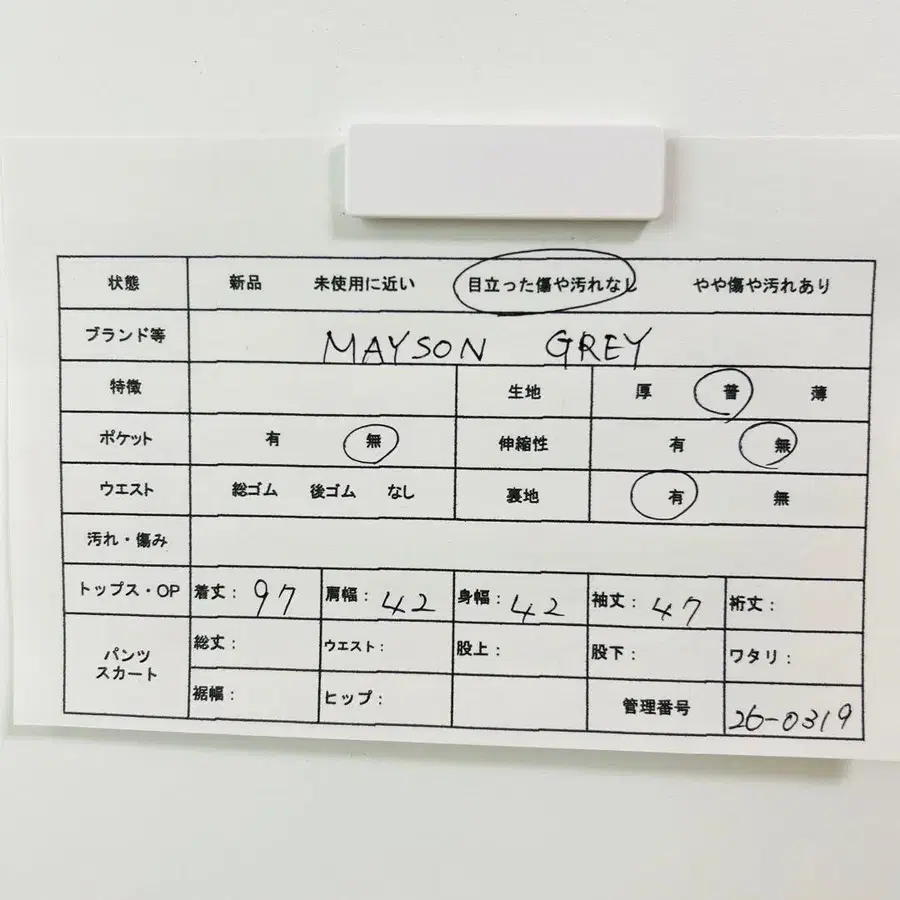 状態 新品 未使用に近い 目立った傷や汚れなし やや傷や汚れあり
ブランド等 MAYSON GREY
特徴 生地 厚 普 薄
ポケット 有 無 伸縮性 有 無
ウエスト 総ゴム 後ゴム なし 裏地 有 無
汚れ・傷み
トップス・OP 着丈: 97 肩幅: 42 身幅: 42 袖丈: 47 裄丈:
パンツ スカート 総丈: ウエスト: 股上: 股下: ワタリ:
裾幅: ヒップ: 管理番号 26-0319